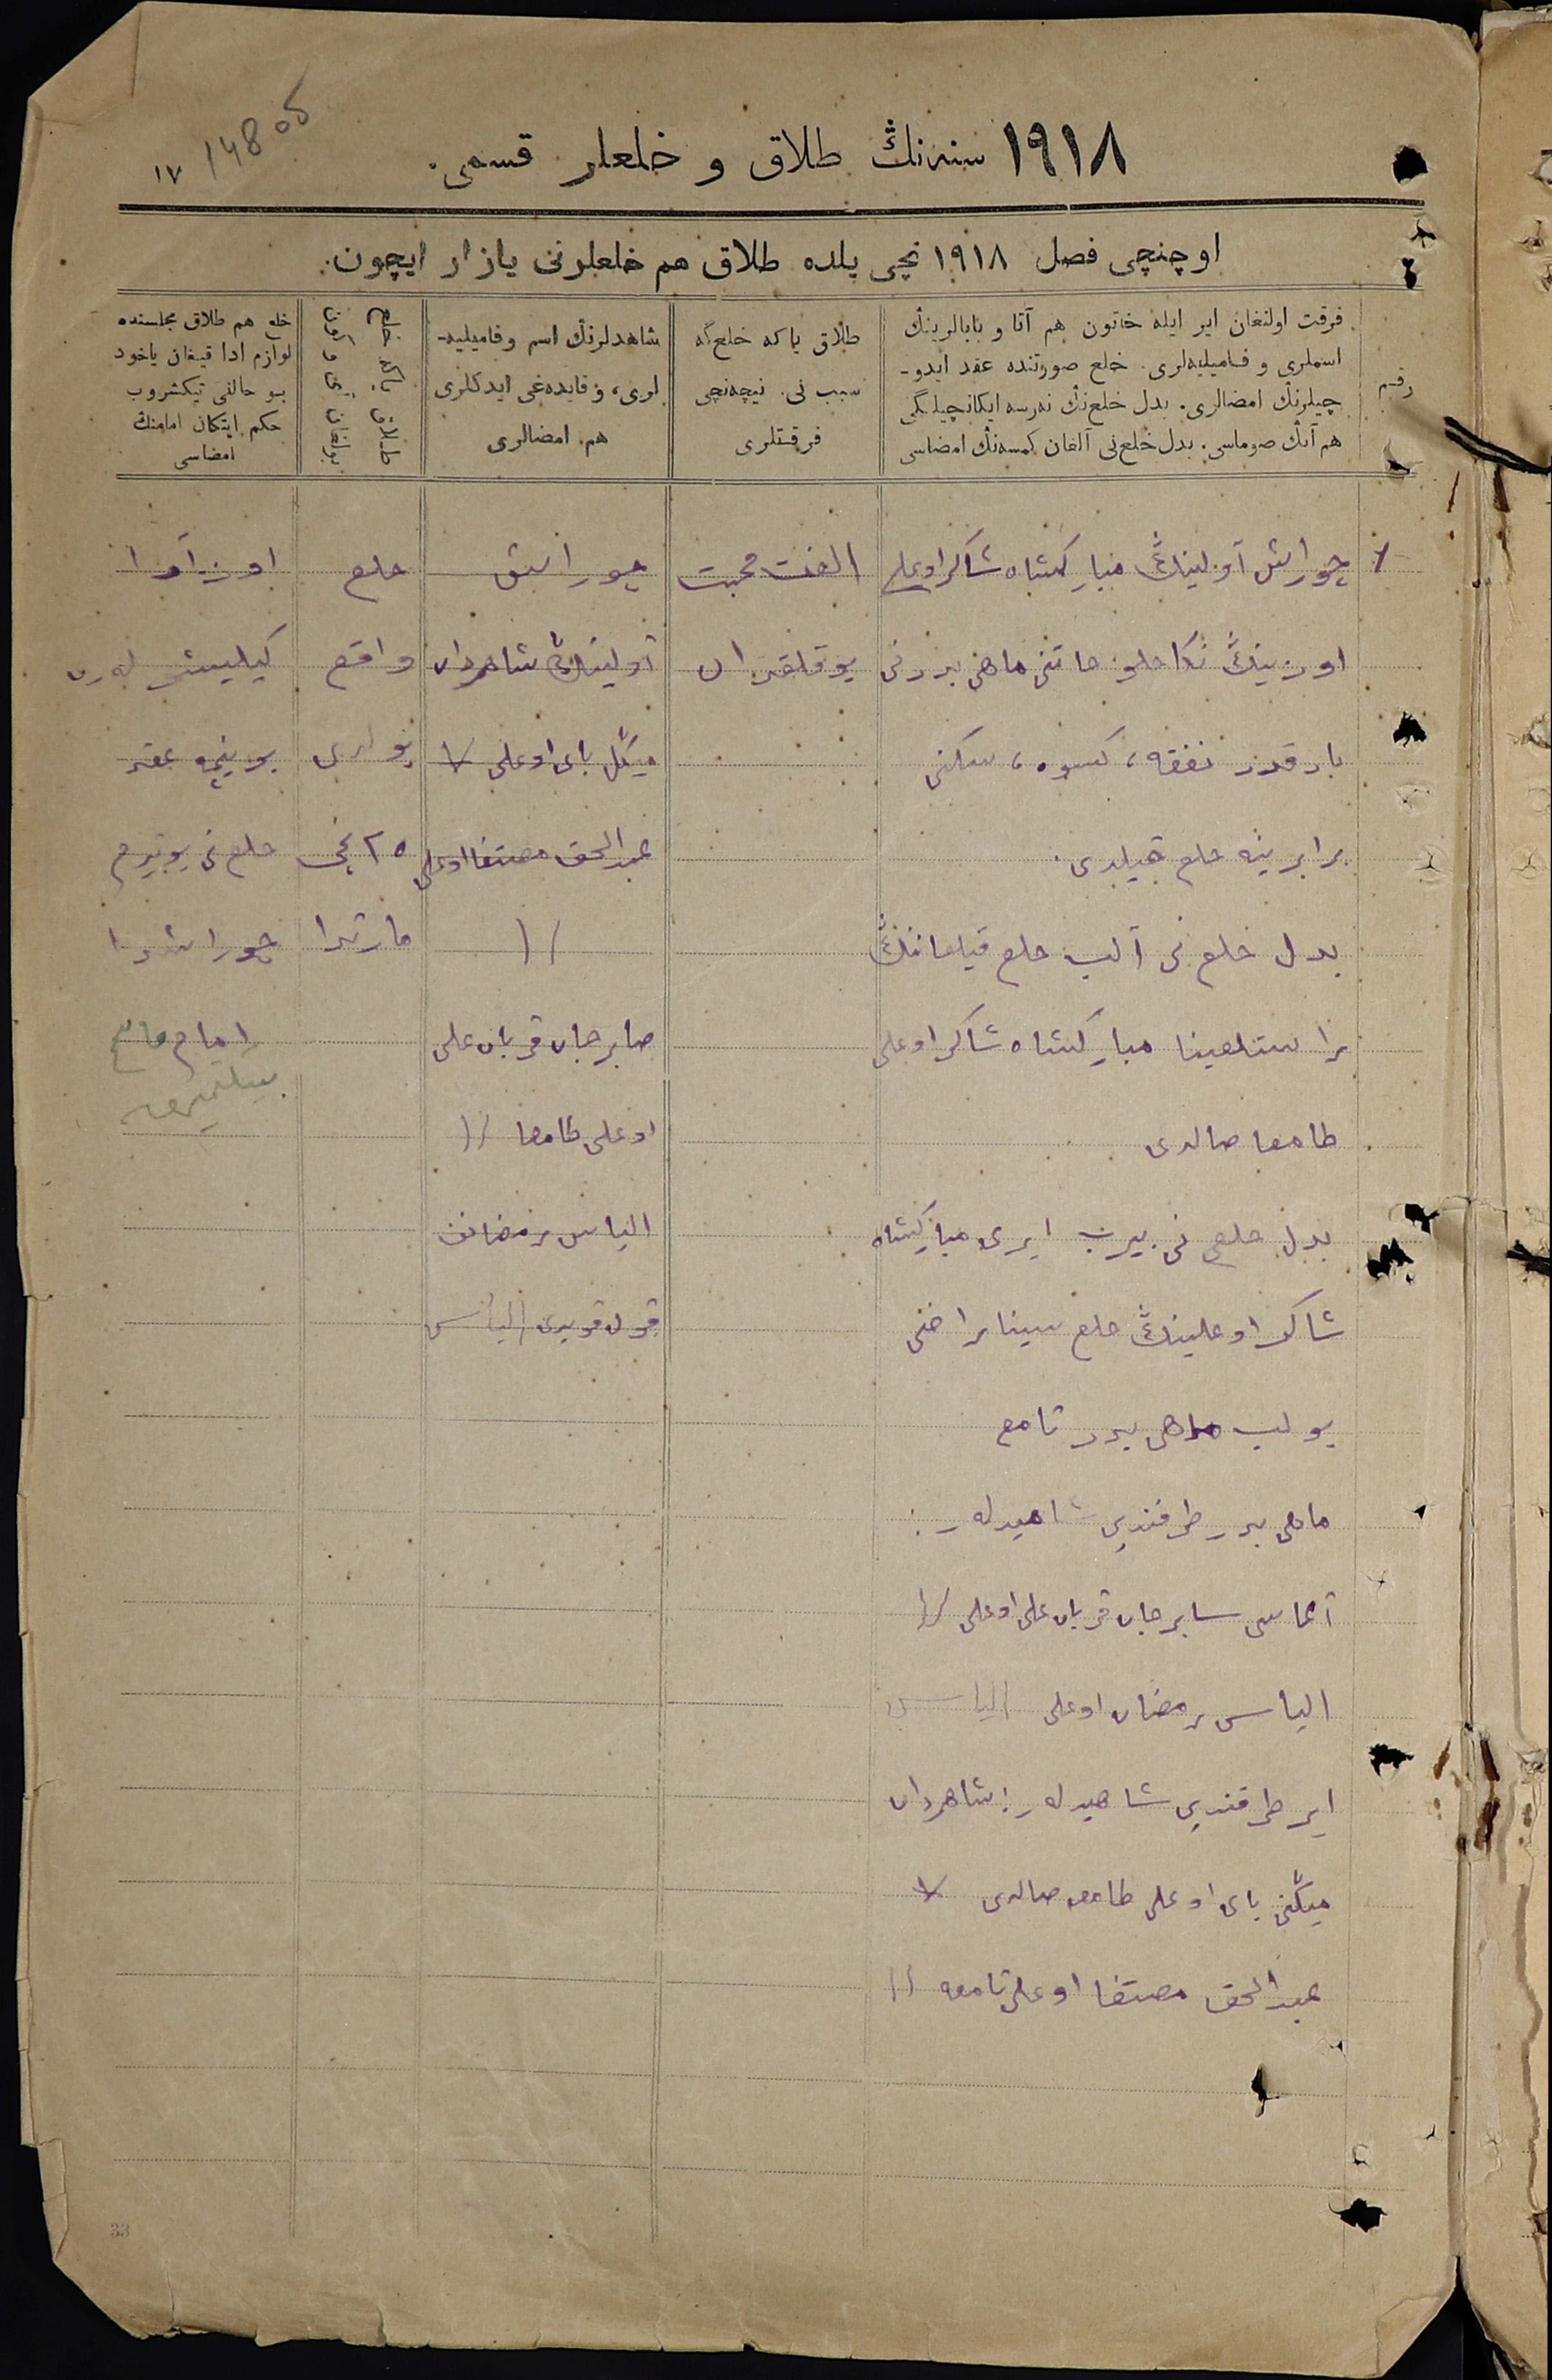 148 об
١٧
١٩١٨ سنه‌نڭ طلاق و خلعلر قسمی.
اوچنچی فصل ١٩١٨ نچی یلده طلاق هم خلعلرنی یازار ایچون.
رقم
فرقت اولنغان ایر ایله خاتون هم آتا و بابالرینڭ
اسملری و فامیلیه‌لری. خلع صورتنده عقد ایدو-
چیلرنڭ امضالری. بدل خلع‌نڭ نه‌رسه ایکانچیلگی
هم آنڭ صوماسی. بدل خلع‌نی آلغان کمسه‌نڭ امضاسی
طلاق یا که خلع‌گه
سبب نی. نیچه‌نچی
فرقتلری
شاهدلرنڭ اسم و فامیلیه-
لری، و قایده‌غی ایدکلری
هم. امضالری
طلاق یاکه خلع
خلع هم طلاق مجلسنده
لوازم ادا قیغان یاخود
بو حالنی تیکشروب
حکم ایتکان امامنڭ
امضاسی
١
چوراش آولینڭ مبارکشاه شاکر اوغلی
اوزینڭ نکاحلو خاتنی ماهی بدرنی
بارقدر نفقه، کسوه، سکنی
برابرینه خلع قیلدی.
بدل خلع نی آلب خلع قیلعاننڭ
راستلعینا مبارکشاه شاکر اوغلی
طامعا صالدی
بدل خلع نی بیرب ایری مبارکشاه
شاکر اوعلینڭ خلع سینا راضی
بولب ماهی بدر تامع
ماهی بدر طرفندین شاهیدلەر:
آعاسی سابرجان قربان علی اوعلی
الیاس رمضان اوعلی الیاس
ایر طرفندین شاهیدلەر: شاهردان
میڭنی بای اوعلی طامعه صالدی
عبدالحق مصتفا اوعلی تامعه
الفت محبت
یوقلقدان
چوراش
آولینڭ شاهردان
میڭل بای اوعلی
عبدالحق مصتفا اوعلی
صابرجان قربان علی
اوعلی طامعا
الیاس رمضانف
قول قویدی الیاس
خلع
واقع
بولدی
٢٥ نچی
مارتدا
اوز آرا
کیلیش لەرن
بوینچه عقد
خلع نی یوتیرم
چوراشدا
امام
33